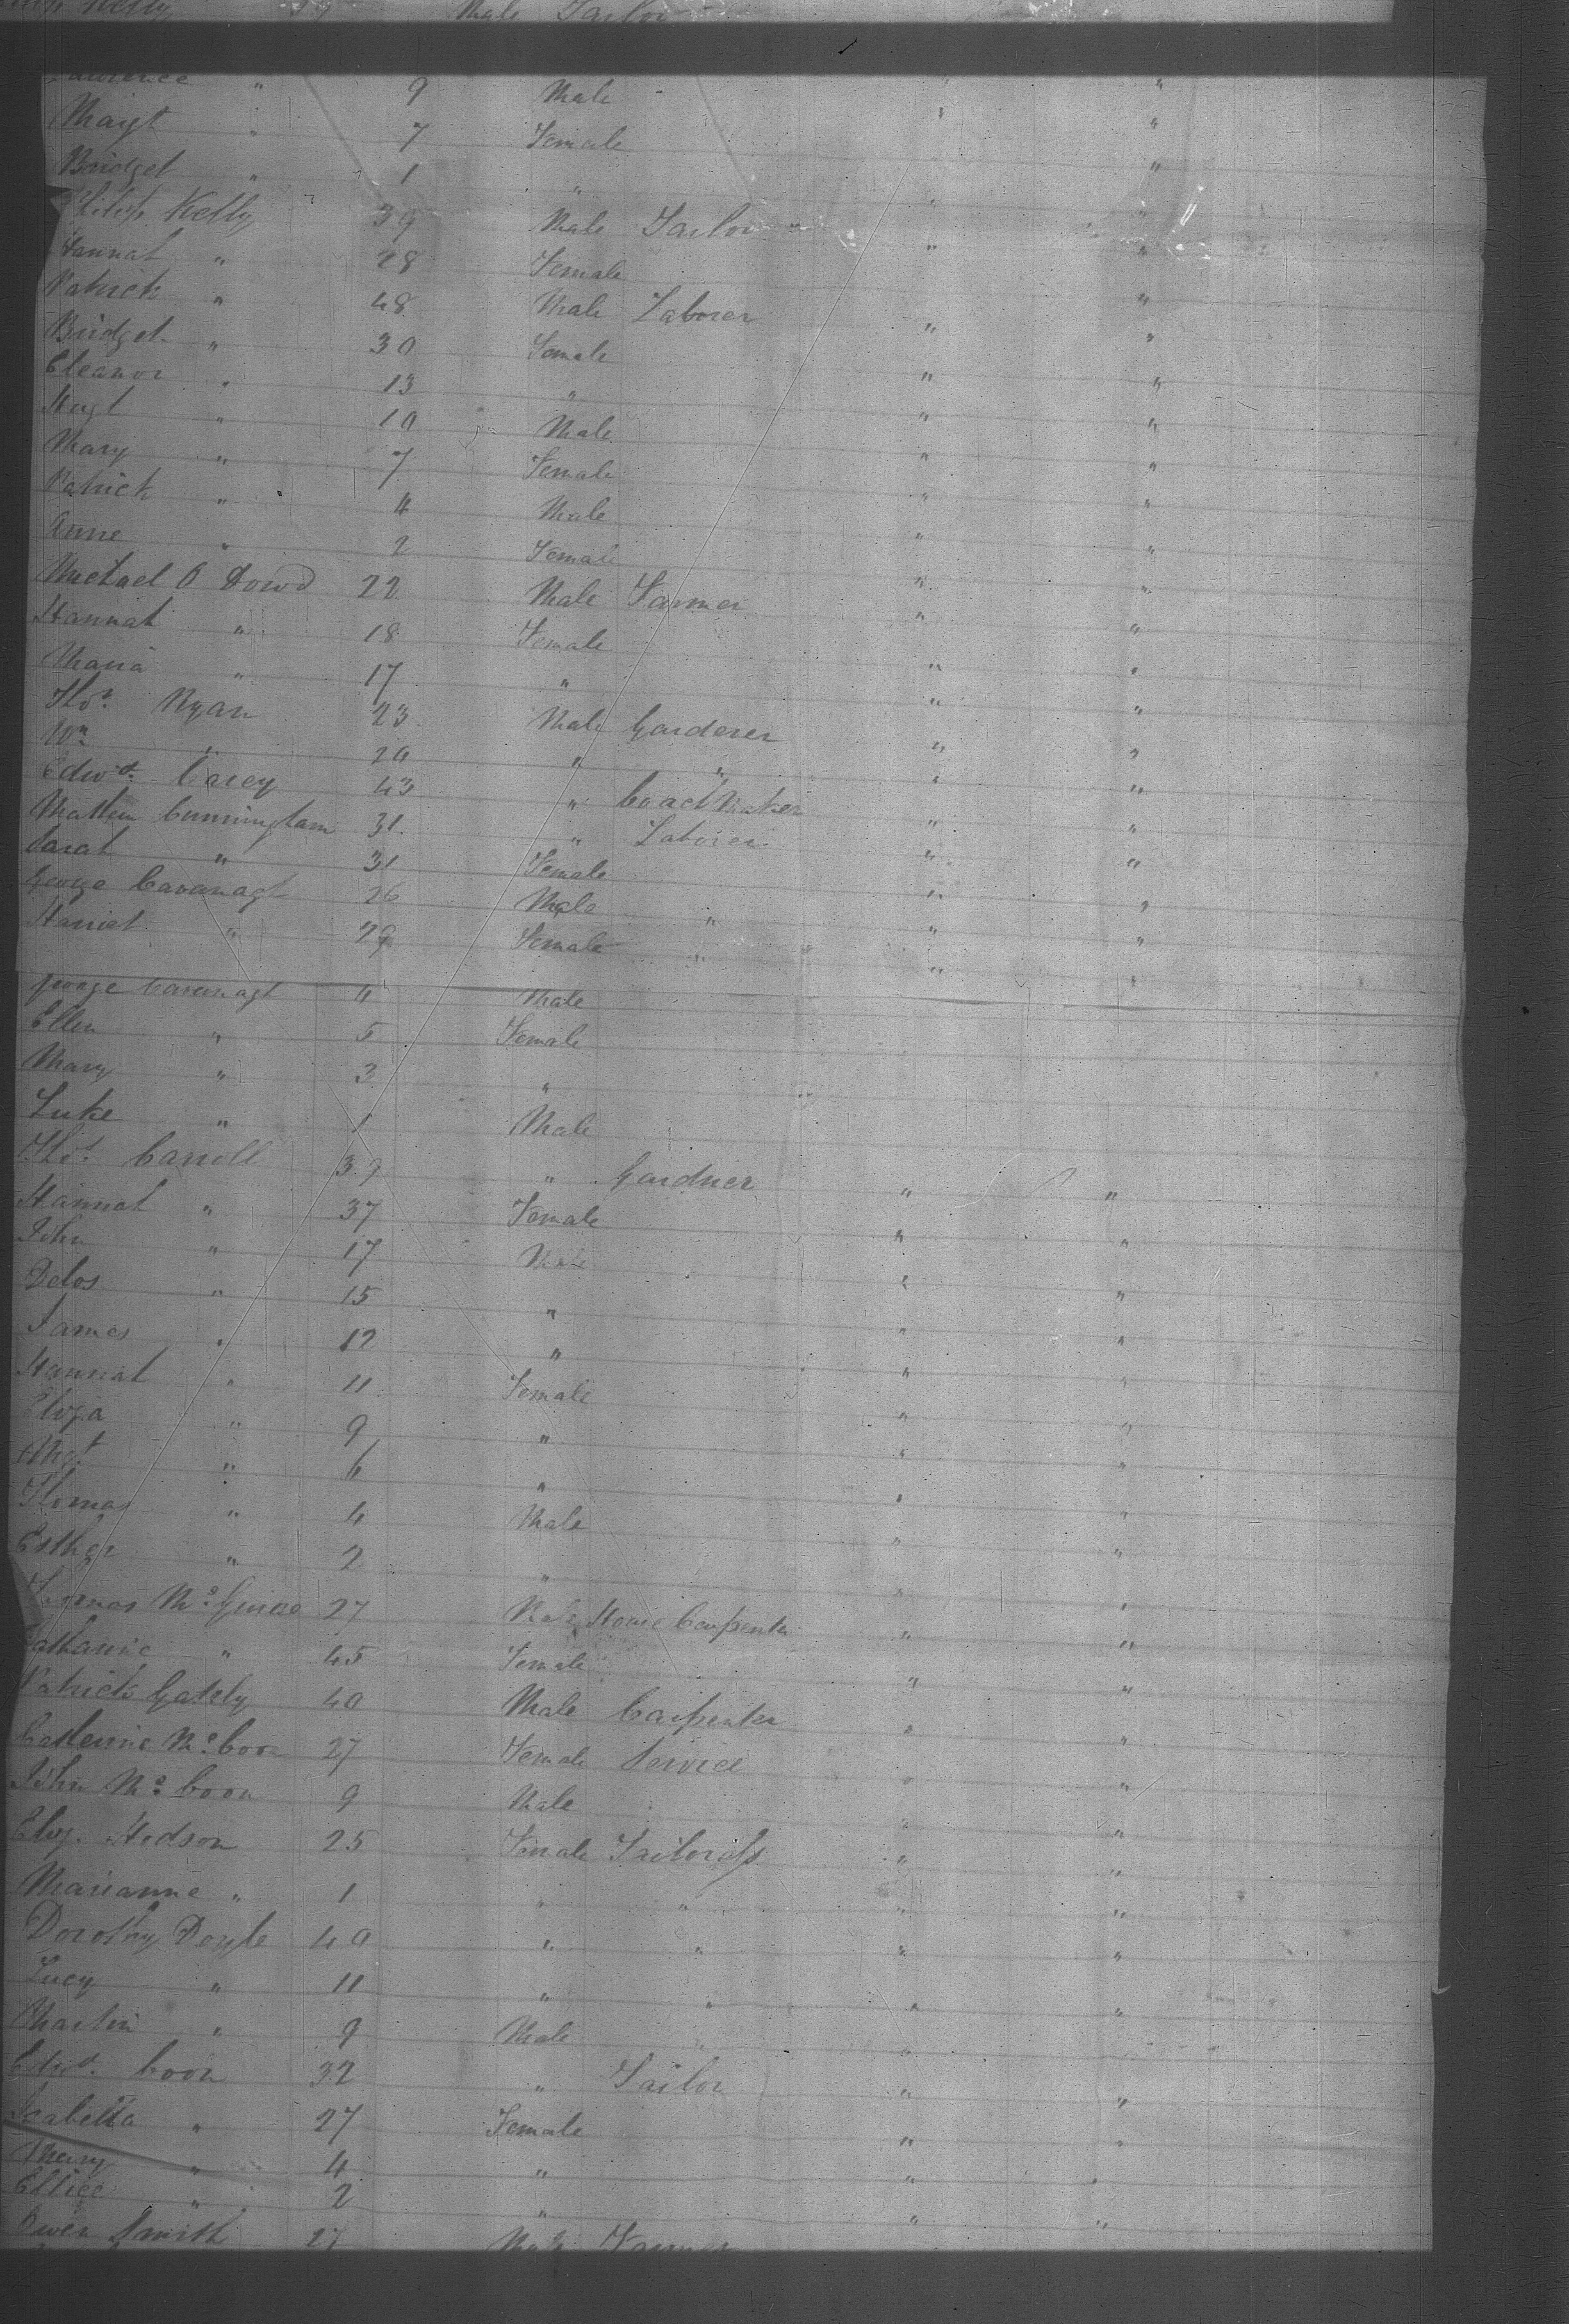 Kelly 39 Male Tailor
Laurence " 9 Male " "
Margt " 7 Female " "
Bridget " 1 " "
Philip Kelly 39 Male Tailor " "
Hannah " 28 Female " "
Patrick " 48 Male Laborer "
Bridget " 30 Female " "
Eleanor " 13 " " "
Hugh " 10 Male " "
Mary " 7 Female " "
Patrick " 4 Male " "
Anne " 2 Female " "
Michael O Dowd 22 Male Farmer " "
Hannah " 18 Female " "
Maria " 17 " " "
Thos. Ryan 23 Male Garderer " "
Wm " 20 " " " "
Edwd. Carey 43 " Coach Maker " "
Mathew Cunningham 31 " Laborer " "
Sarah " 31 Female " "
George Cavanagh 26 Male " " "
Harriet " 29 Female " " "
George Cavanagh " Male
Ellen " 5 Female
Mary " 3 "
Luke " 1 Male
Thos. Carroll 39 " Gardner " "
Hannah " 37 Female " "
John " 17 Male " "
Delos " 15 " " "
James " 12 " " "
Hannah " 11 Female " "
Eliza " 9 " " "
Mgt " 6 " " "
Thomas " 4 Male " "
Esther " 2 " " "
Thomas McGuire 27 Male House Carpenter " "
Catharine " 45 Female " "
Patrick Gately 40 Male Carpenter " "
Catherine McCoon 27 Female Service " "
John McCoon 9 Male " "
Eliz. Hodson 25 Female Tailoress " "
Marianne " 1 " " " "
Dorothy Doyle 40 " " " "
Lucy " 11 " " " "
Martin " 9 Male " "
Edwd. Coon 32 " Tailor " "
Isabella " 27 Female " "
Mary " 4 " " "
Ellice " 2 " " "
Owen Smith 27 Male Farmer